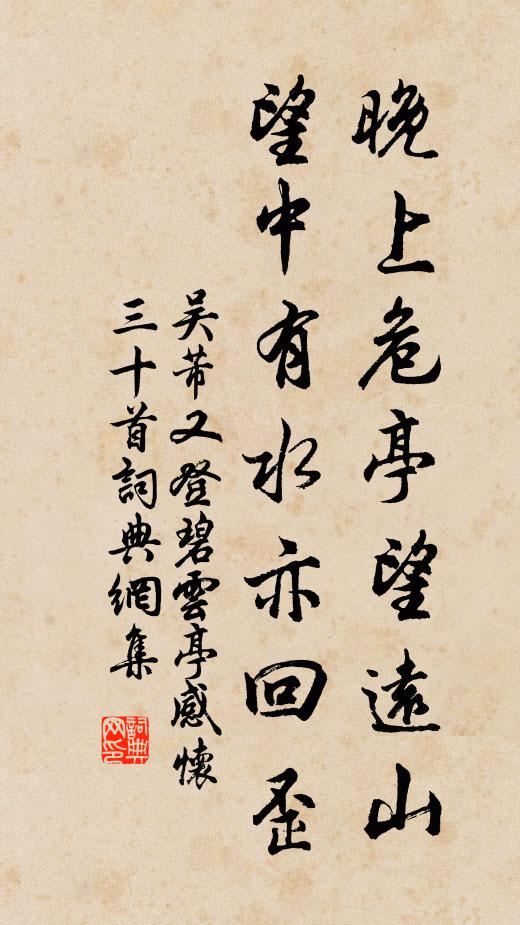 晚上危亭望遠山
望中有水亦回歪
吳芾又登碧雲亭感懷
三十首詞典網集
詞典
网印